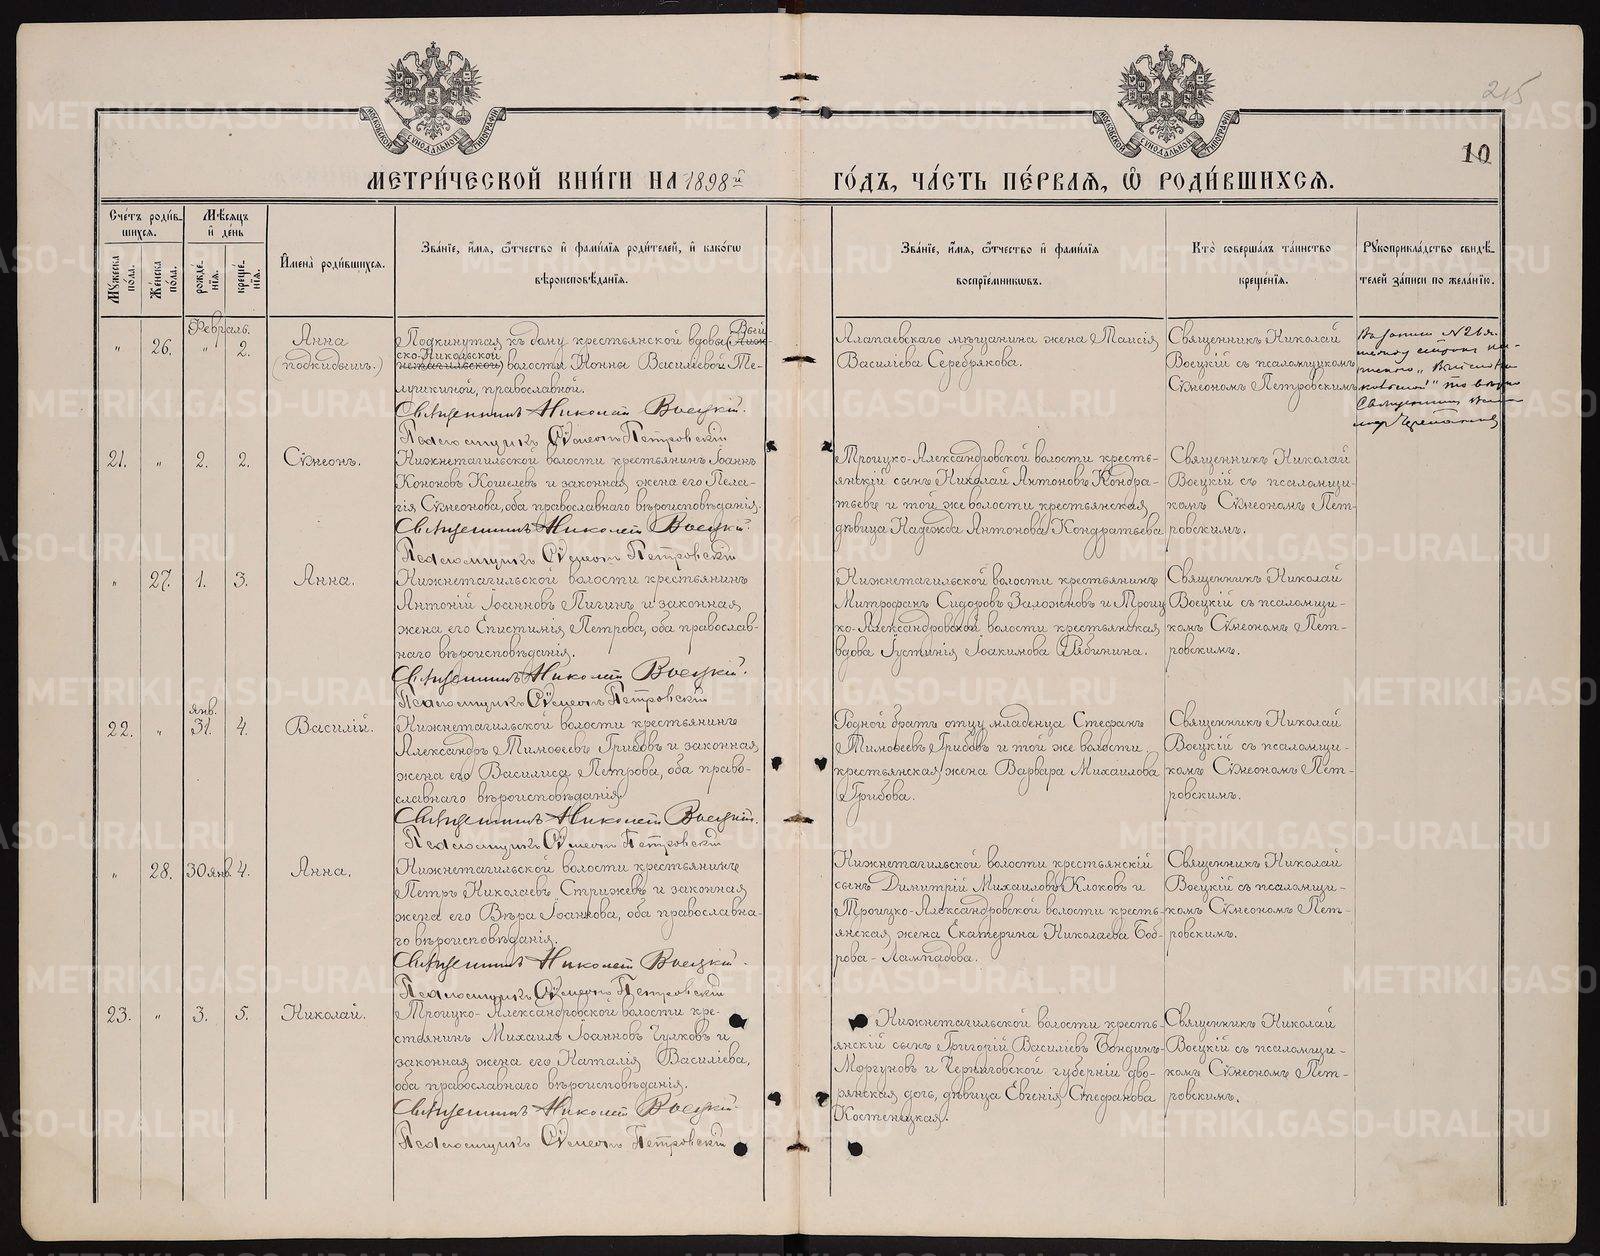 215
10
МОСКОВСКОЙ СУНОДАЛЬНОЙ ТИПОГРАФІИ
МОСКОВСКОЙ СУНОДАЛЬНОЙ ТИПОГРАФІИ
МЕТРИ́ЧЕСКОЙ КНИ́ГИ НА 1898й ГО́ДЪ, ЧА́СТЬ ПЕ́РВАѦ, Ѡ҆ РОДИ́ВШИХСѦ.
Сче́тъ роди́в-
шихсѧ.
Мꙋжеска по́ла.
Же́нска по́ла.
Мѣ́сѧцъ
и҆ де́нь
рожде́-
нїѧ.
креще́-
нїѧ.
И҆мена̀ роди́вшихсѧ.
Зва́нїе, и҆́мѧ, ѻ҆́тчество и҆ фами́лїѧ роди́телей, и҆ како́гѡ
вѣроисповѣ́данїѧ.
Зва́нїе, и҆́мѧ, ѻ҆́тчество и҆ фами́лїѧ
воспрїе́мникѡвъ.
Кто̀ соверша́лъ та́инство
креще́нїѧ.
Рꙋкоприкла́дство свидѣ́-
телей за́писи по жела́нїю.
Февраль.
" 26. " 2.
Анна
(подкидышъ.)
Подкинутая къ дому крестьянской вдовы (Вый
ско-Никольской
волости Іонны Василіевой Те-
лушкиной, православной.
Священникъ Николай Воецкій.
Псаломщикъ Сѵмеонъ Петровскій
Алапаевскаго мѣщанина жена Таисія
Василіева Серебрякова.
Священникъ Николай
Воецкій съ псаломщикомъ
Сѵмеономъ Петровскимъ
Въ записи №26
Священникъ
21. " 2. 2. Сѵмеонъ.
Нижнетагильской волости крестьянинъ Іоаннъ
Кононовъ Кошелевъ и законная жена его Пела-
гія Сѵмеонова, оба православнаго вѣроисповѣданія.
Священникъ Николай Воецкій.
Псаломщикъ Сѵмеонъ Петровскій
Троицко-Александровской волости кресть-
янскій сынъ Николай Антоновъ Кондра-
тьевъ и той же волости крестьянская
дѣвица Надежда Антонова Кондратьева
Священникъ Николай
Воецкій съ псаломщи-
комъ Сѵмеономъ Пет-
ровскимъ.
" 27. 1. 3. Анна.
Нижнетагильской волости крестьянинъ
Антоній Іоанновъ Пигинъ и законная
жена его Епистимія Петрова, оба православ-
наго вѣроисповѣданія.
Священникъ Николай Воецкій.
Псаломщикъ Сѵмеонъ Петровскій
Нижнетагильской волости крестьянинъ
Митрофанъ Сидоровъ Заложновъ и Троиц
ко-Александровской волости крестьянская
вдова Іустинія Іоакимова Рябинина.
Священникъ Николай
Воецкій съ псаломщи-
комъ Сѵмеономъ Пет-
ровскимъ.
янв.
22. " 31. 4. Василій.
Нижнетагильской волости крестьянинъ
Александръ Тимоѳеевъ Грибовъ и законная
жена его Василиса Петрова, оба право-
славнаго вѣроисповѣданія.
Священникъ Николай Воецкій.
Псаломщикъ Сѵмеонъ Петровскій
Родной братъ отцу младенца Стефанъ
Тимоѳеевъ Грибовъ и той же волости
крестьянская жена Варвара Михаилова
Грибова.
Священникъ Николай
Воецкій съ псаломщи-
комъ Сѵмеономъ Пет-
ровскимъ.
" 28. 30 янв. 4. Анна.
Нижнетагильской волости крестьянинъ
Петръ Николаевъ Стрижевъ и законная
жена его Вѣра Іоаннова, оба православна-
го вѣроисповѣданія.
Священникъ Николай Воецкій.
Псаломщикъ Сѵмеонъ Петровскій
Нижнетагильской волости крестьянскій
сынъ Димитрій Михаиловъ Клоковъ и
Троицко-Александровской волости кресть-
янская жена Екатерина Николаева Боб-
рова-Лампадова.
Священникъ Николай
Воецкій съ псаломщи-
комъ Сѵмеономъ Пет-
ровскимъ.
23. " 3. 5. Николай.
Троицко-Александровской волости кре-
стьянинъ Михаилъ Іоанновъ Чулковъ и
законная жена его Наталія Василіева,
оба православнаго вѣроисповѣданія.
Священникъ Николай Воецкій.
Псаломщикъ Сѵмеонъ Петровскій
Нижнетагильской волости кресть-
янскій сынъ Григорій Василіевъ Бондинъ-
Моргуновъ и Черниговской губерніи дво-
рянская дочь, дѣвица Евгенія Стефанова
Костенецкая.
Священникъ Николай
Воецкій съ псаломщи-
комъ Сѵмеономъ Пет-
ровскимъ.
METRIKI.GASO-URAL.RU